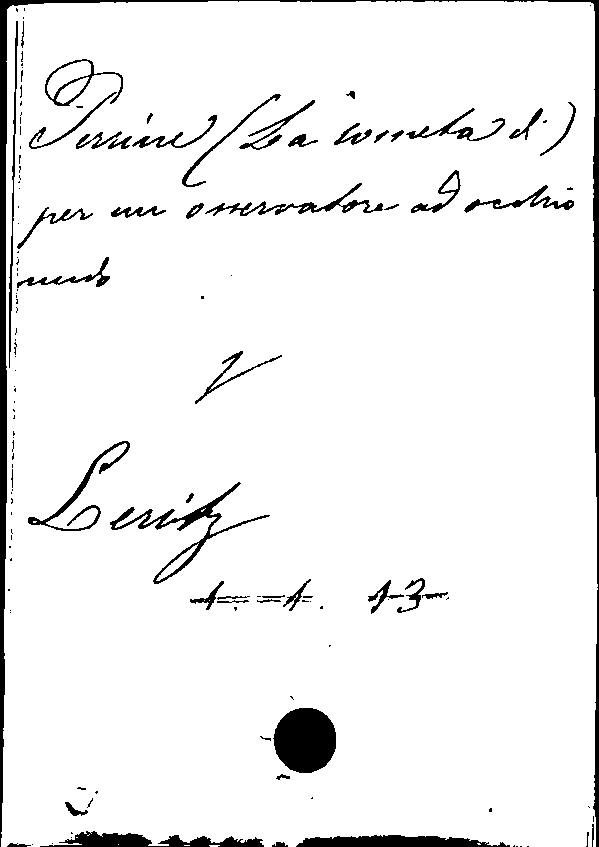 Perrine (La cometa di)
per un osservatore ad occhio
nudo
V
Lenitz
1. 1. 13